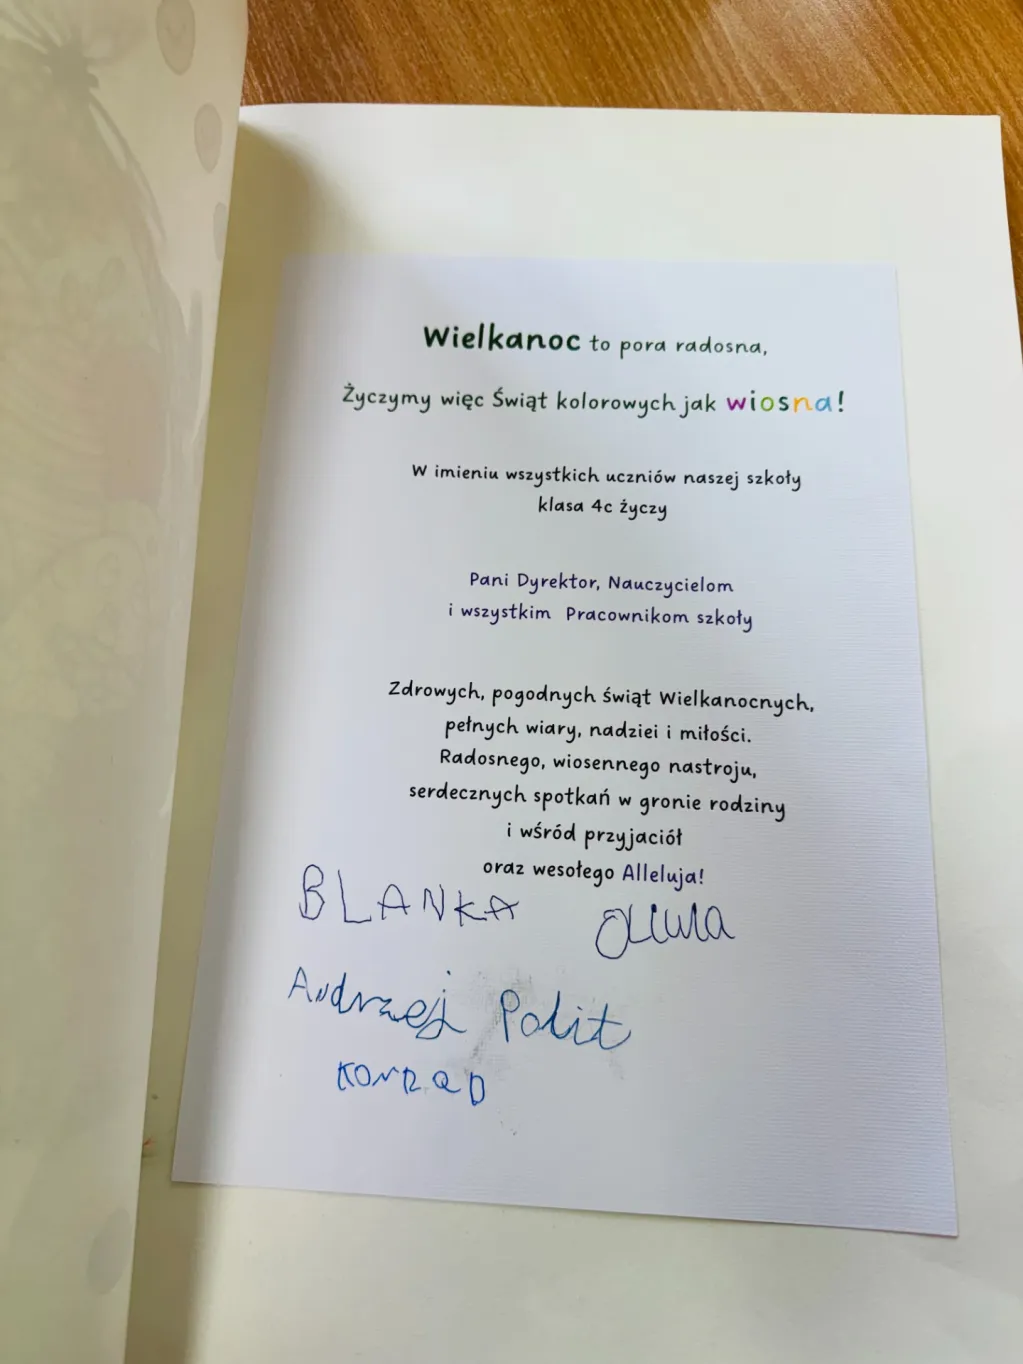 Wielkanoc to pora radosna,
Życzymy więc Świąt kolorowych jak wiosna!
W imieniu wszystkich uczniów naszej szkoły
klasa 4c życzy
Pani Dyrektor, Nauczycielom
i wszystkim Pracownikom szkoły
Zdrowych, pogodnych świąt Wielkanocnych,
pełnych wiary, nadziei i miłości.
Radosnego, wiosennego nastroju,
serdecznych spotkań w gronie rodziny
i wśród przyjaciół
oraz wesołego Alleluja!
BLANKA
Andrzej Polit
KONRAD